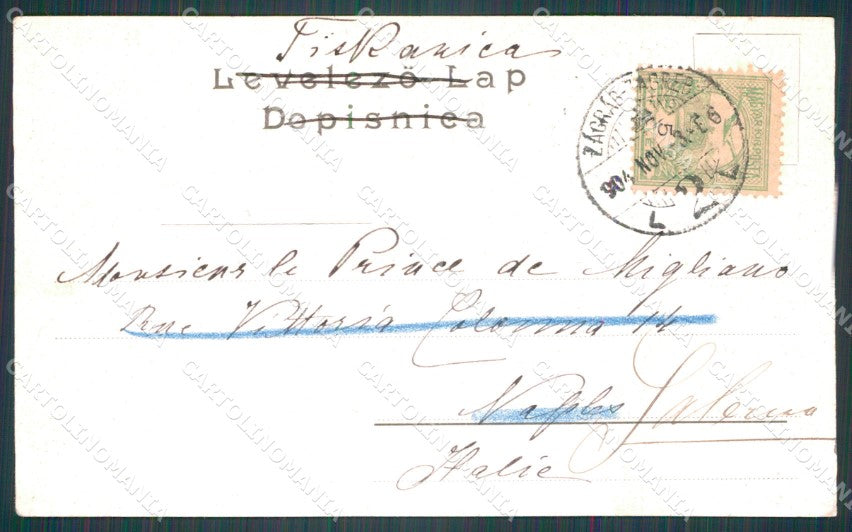 Tiskanica
Levelező Lap
Dopisnica
ZÁGRÁB-ZAGREB
904 NOV. 3.
2
L
Monsieur le Prince de Migliano
Rue Vittoria Colonna 14
Naples Salerno
Italie
CARTOLINOMANIA